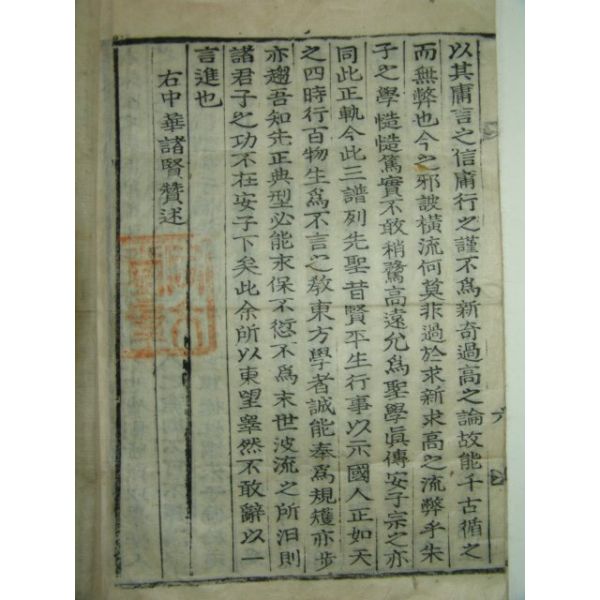 以其庸言之信庸行之謹不爲新奇過高之論故能千古循之
而無弊也今之邪詖橫流何莫非過於求新求高之流弊乎朱
子之學慥慥篤實不敢稍騖高遠允爲聖學眞傳安子宗之亦
同此正軌今此三譜列先聖昔賢平生行事以示國人正如天
之四時行百物生爲不言之敎東方學者誠能奉爲規矱亦步
亦趨吾知先正典型必能永保不愆不爲末世波流之所汨則
諸君子之功不在安子下矣此余所以東望睾然不敢辭以一
言進也
右中華諸賢贊述